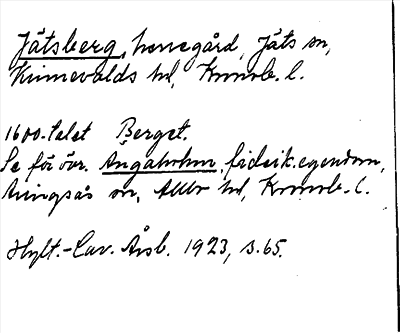 Jätsberg, herregård, Jäts sn,
Kinnevalds hd, Kronob. l.
1600-talet Berget.
Se för övr. Ängaholm, fideik.egendom,
Aringsås sn, Allbo hd, Kronob. l.
Hylt.-Cav. Årsb. 1923, s. 65.